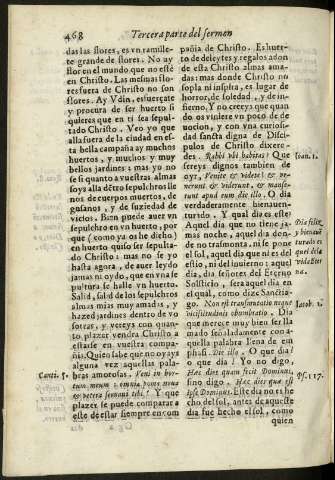 468
Tercera parte del sermon
das las flores, es vn ramille-
te grande de flores. No ay
flor en el mundo que no esté
en Christo. Las mesmas flo-
res fuera de Christo no son
flores. Ay
esfuerçate
y procura de ser huerto si
quieres que en ti sea sepul-
tado Christo. Veo yo que
alla fuera de la ciudad en es-
ta bella campaña ay muchos
huertos, y muchos y muy
bellos jardines: mas yo no
sé si quanto a vuestras almas
soys alla dētro sepulchros lle
nos de cuerpos muertos, de
gusanos, y de suziedad de
vicios. Bien puede auer vn
sepulchro en vn huerto, por
que (como ya os dixe dicho)
en huerto quiso ser sepulta-
do Christo: mas no se yo
hasta agora, de auer leydo
jamas ni oydo, que en vna se
pultura se halle vn huerto.
Salid, salid de los sepulchros
almas mias muy amadas, y
hazed jardines dentro de vo
sotras, y vereys con quan-
to plazer vendra Christo a
estarse en vuestra compa-
ñia. Quien sabe que no ayays
alguna vez aquellas pala-
Canti. 5.
bras amorosas. Veni in hor-
tum meum
omnia poma noua
& vetera seruaui tibi? Y que
plazer se puede comparar a
este de estar siempre en com
pañia de Christo. Es huer-
to de deleytes y regalos adon
de esta Christo almas ama-
das: mas donde Christo no
sopla ni inspira, es lugar de
horror, de soledad, y de in-
fierno, Y no creays que quan
do os viniere vn poco de de
uocion, y con vna curiosi-
dad sancta digna de Disci-
pulos de Christo dixere-
des. Rabbi vbi habitas? Que
Ioan. 1.
sereys dignos tambien de
oyr, Venite & videte: & ve-
nerunt & viderunt, & manse-
runt apud eum die illo. O dia
verdaderamente bienauen-
turado. Y qual dia es este?
Aquel dia que no tiene ja-
Dia feliz,
mas noche, aquel dia don-
y bienauē
de no trasmonta, ni se pone
turado es
el sol, aquel dia que ni es del
quel de la
estio, ni del inuierno: aquel
vida Eter
dia, dia señores del Eterno
na.
Solsticio, sera aquel dia en
el qual, como dize Sanctia-
go. Non est transmutatio neque
Iacob. 1.
vicissitudinis obumbratio. Dia
que merece muy bien ser lla
mado señaladamente con a-
quella palabra Pena de em
Die illo. O que dia?
o que dia! Yo no digo,
Hæc dies quam fecit Dominus,
Ps. 117.
sino digo. Hæc dies quæ est
ipse Dominus. Este dia no es he
cho del sol, antes de aqueste
dia fue hecho el sol, como
quien